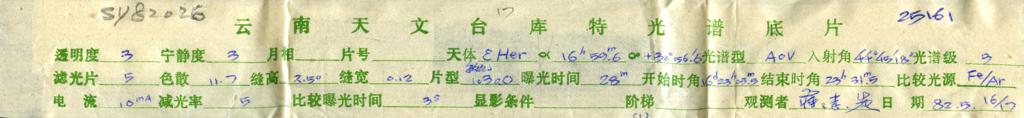 sy82026 17
云南天文台库特光谱底片 25161
透明度 3 宁静度 3 月相 片号 天体 ε Her α 16ʰ59ᵐ.6 δ +30°56'.6 光谱型 A0V 入射角 44°45'18" 光谱级 3
滤光片 5 色散 11.7 缝高 2.50 缝宽 0.12 片型 曝光时间 28ᵐ 开始时角 结束时角 23ʰ31ᵐ5 比较光源 Fe/Ar
电流 10mA 减光率 5 比较曝光时间 3ˢ 显影条件 阶梯 观测者 日期 82.5.16/17